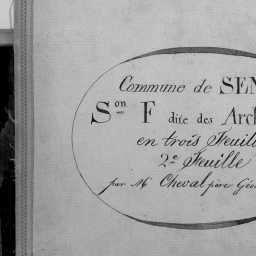 Commune de SEN
Son F dite des Arch
en trois Feuill
2e Feuille
par Mr Cheval père Géo